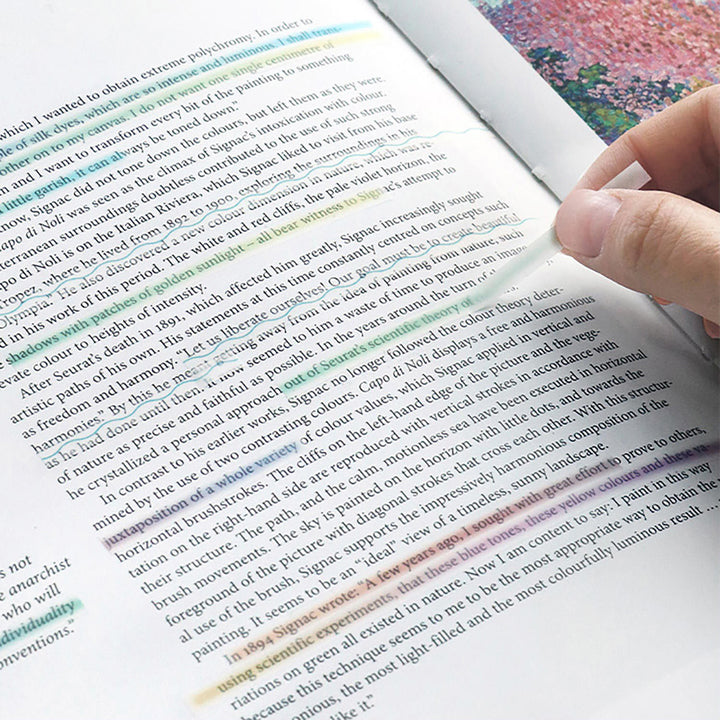 which I wanted to obtain extreme polychromy. In order to
le of silk dyes, which are so intense and luminous. I shall tran-
other on to my canvas. I do not want one single centimetre of
n and I want to transform every bit of the painting to something
little garish, it can always be toned down."
now, Signac did not tone down the colours, but left them as they were.
Capo di Noli was seen as the climax of Signac's intoxication with colour.
terranean surroundings doubtless contributed to the use of such strong
po di Noli is on the Italian Riviera, which Signac liked to visit from his base
Tropez, where he lived from 1892 to 1900, exploring the surroundings in his
Olympia." He also discovered a new colour dimension in nature, which was re-
d in his work of this period. The white and red cliffs, the pale violet horizon, the
shadows with patches of golden sunlight – all bear witness to Signac's attempt to
evate colour to heights of intensity.
After Seurat's death in 1891, which affected him greatly, Signac increasingly sought
artistic paths of his own. His statements at this time constantly centred on concepts such
as freedom and harmony. "Let us liberate ourselves! Our goal must be to create beautiful
harmonies." By this he meant getting away from the idea of painting from nature, such
as he had done until then. It now seemed to him a waste of time to produce an image
of nature as precise and faithful as possible. In the years around the turn of
he crystallized a personal approach out of Seurat's scientific theory of
In contrast to his earlier works, Signac no longer followed the colour theory deter-
mined by the use of two contrasting colours. Capo di Noli displays a free and harmonious
juxtaposition of a whole variety of colour values, which Signac applied in vertical and
horizontal brushstrokes. The cliffs on the left-hand edge of the picture and the vege-
tation on the right-hand side are reproduced with vertical strokes in accordance with
their structure. The path, and the calm, motionless sea have been executed in horizontal
brush movements. The sky is painted on the horizon with little dots, and towards the
foreground of the picture with diagonal strokes that cross each other. With this structur-
al use of the brush, Signac supports the impressively harmonious composition of the
painting. It seems to be an "ideal" view of a timeless, sunny landscape.
In 1894 Signac wrote: "A few years ago, I sought with great effort to prove to others,
using scientific experiments, that these blue tones, these yellow colours and these va-
riations on green all existed in nature. Now I am content to say: I paint in this way
because this technique seems to me to be the most appropriate way to obtain the
onious, the most light-filled and the most colourfully luminous result ...
like it."
s not
e anarchist
who will
dividuality
onventions."